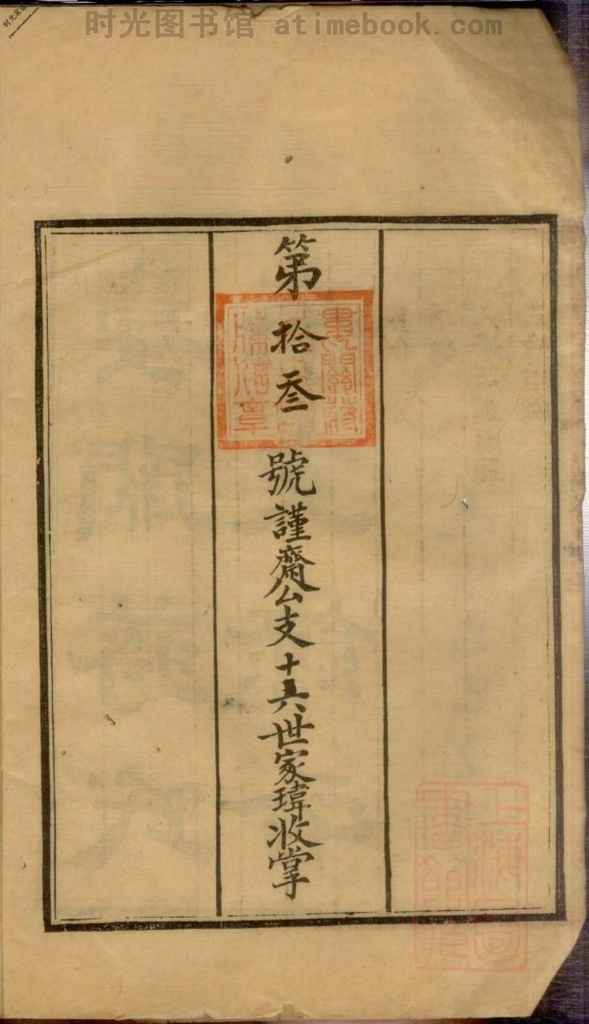 时光图书馆 atimebook.com
第拾叁號謹齋公支十六世家瑋收掌